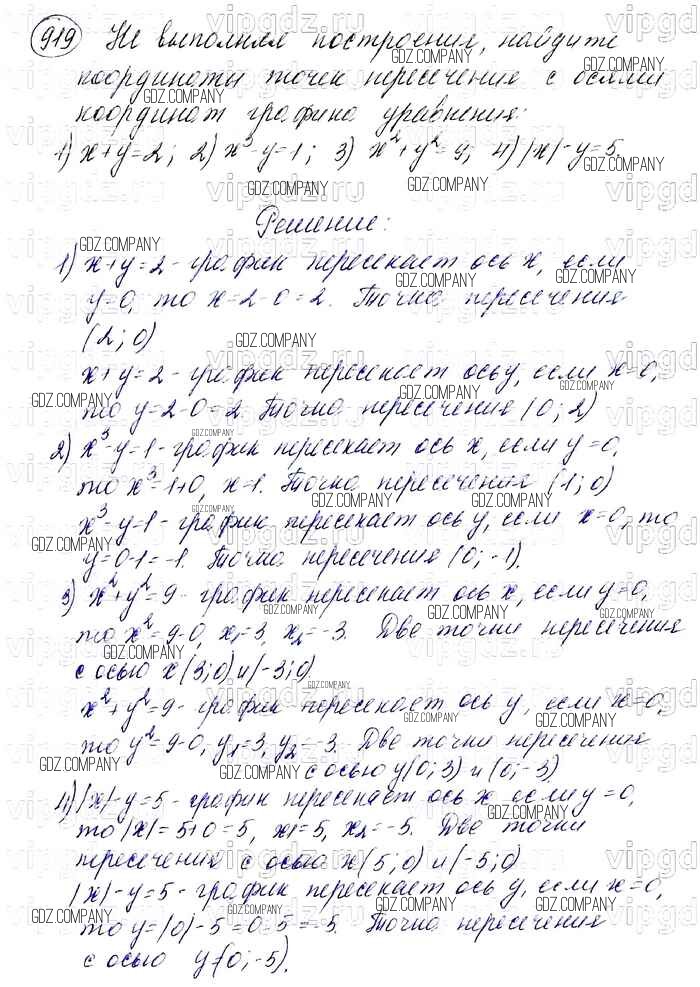 919 Не выполняя построения, найдите
координаты точек пересечения с осями
координат графика уравнения:
1) x+y=2; 2) x³-y=1; 3) x²+y²=9; 4) |x|-y=5.
Решение:
1) x+y=2 - график пересекает ось x, если
y=0, то x=2-0=2. Точка пересечения
(2; 0)
x+y=2 - график пересекает ось y, если x=0,
то y=2-0=2. Точка пересечения (0; 2)
2) x³-y=1 - график пересекает ось x, если y=0,
то x³=1+0, x=1. Точка пересечения (1; 0)
x³-y=1 - график пересекает ось y, если x=0, то
y=0-1=-1. Точка пересечения (0; -1).
3) x²+y²=9 - график пересекает ось x, если y=0,
то x²=9-0, x₁=3, x₂=-3. Две точки пересечения
с осью x (3; 0) и (-3; 0)
x²+y²=9 - график пересекает ось y, если x=0,
то y²=9-0, y₁=3, y₂=-3. Две точки пересечения
с осью y (0; 3) и (0; -3)
4) |x|-y=5 - график пересекает ось x, если y=0,
то |x|=5+0=5, x₁=5, x₂=-5. Две точки
пересечения с осью x (5; 0) и (-5; 0)
|x|-y=5 - график пересекает ось y, если x=0,
то y=|0|-5=0-5=-5. Точка пересечения
с осью y (0; -5).